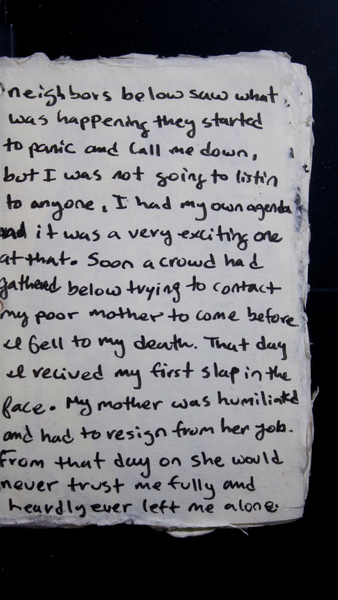 neighbors below saw what
was happening they started
to panic and call me down,
but I was not going to listin
to anyone, I had my own agenda
and it was a very exciting one
at that. Soon a crowd had
gathered below trying to contact
my poor mother to come before
I fell to my death. That day
I recived my first slap in the
face. My mother was humiliatd
and had to resign from her job.
From that day on she would
never trust me fully and
heardly ever left me alone.